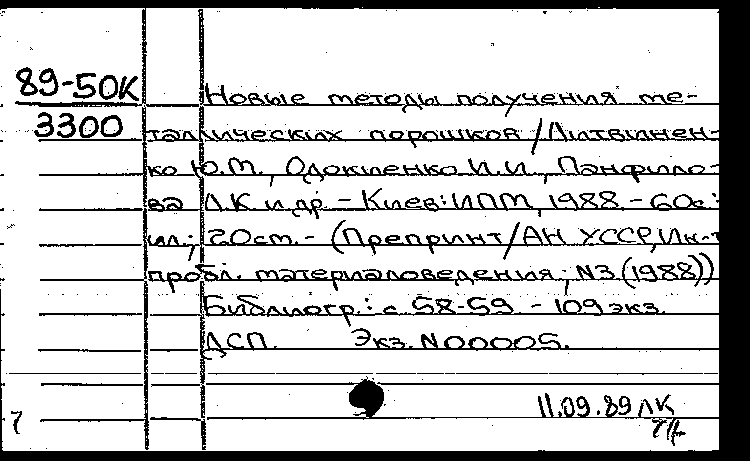 89-50К
Новые методы получения ме-
3300
таллических порошков / Литвинен-
ко Ю.М., Одокиенко И.И., Панфило-
ва Л.К и др. - Киев: ИПМ, 1988. - 60с.:
ил.; 20см. - (Препринт / АН УССР, Ин-т
пробл. материаловедения; N3 (1988))
Библиогр.: с 58-59 - 109 экз.
ДСП. Экз. N00005.
11.09.89 ЛК
7